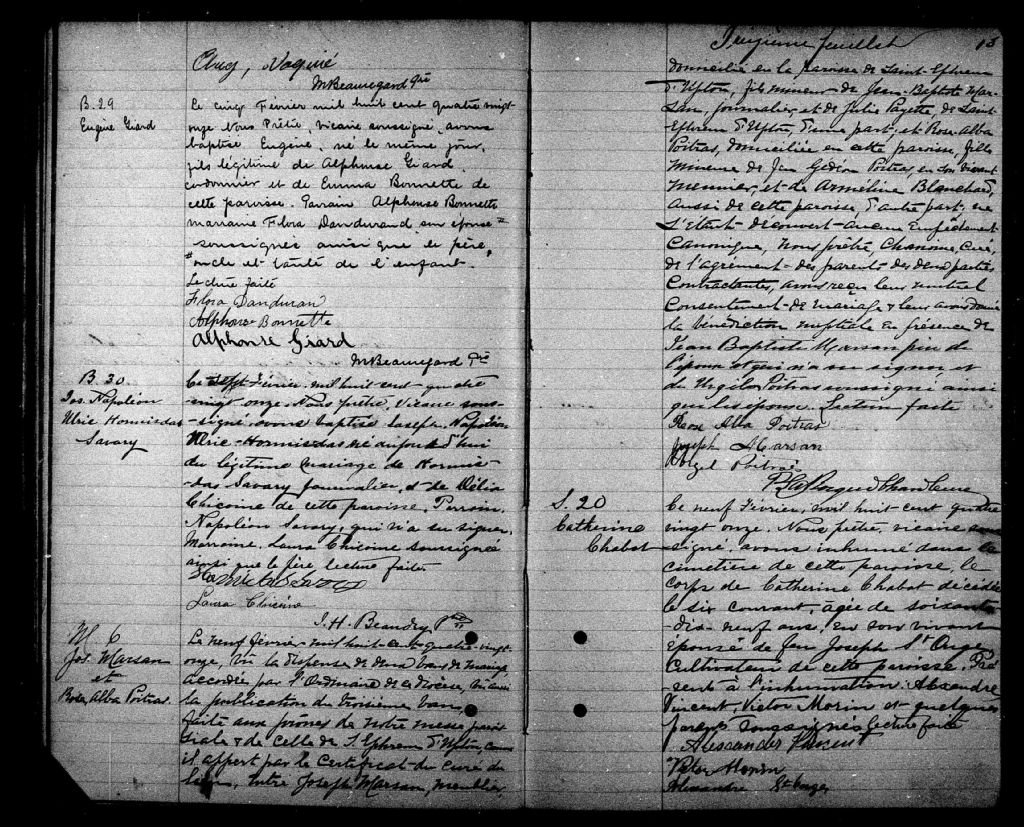 M Beauregard Ptre
B. 29
Eugène Giard
Le cinq Février mil huit cent quatre vingt
onze Nous Prêtre, vicaire soussigné, avons
baptisé Eugène, né le même jour,
fils légitime de Alphonse Giard
cordonnier et de Emma Bonnette de
cette paroisse. Parrain Alphonse Bonnette
marraine Flora Dandurand, son épouse
soussignés ainsi que le père,
oncle et tante de l'enfant.
Lecture faite
Flora Danduran
Alphonse Bonnette
Alphonse Giard
M Beauregard Ptre
B. 30
Jos. Napoléon
Ulric Hormisdas
Savary
Le sept Février mil huit cent quatre
vingt onze. Nous prêtre, vicaire sous-
signé, avons baptisé Joseph, Napoléon
Ulric-Hormisdas né aujourd'hui
du légitime mariage de Hormis-
das Savary journalier, et de Délia
Chicoine de cette paroisse. Parrain,
Napoléon Savary, qui n'a su signer,
Marraine, Laura Chicoine soussignée
ainsi que le père, lecture faite.
Laura Chicoine
J. H. Beaudry Ptre
M 6
Jos. Marsan
et
Rose Alba Poitras.
Le neuf février mil huit cent quatre-vingt-
onze, vu la dispense de deux bans de mariage
accordée par l'Ordinaire de ce Diocèse, vu aussi
la publication du troisième ban,
faite aux prônes de notre messe parois-
siale & de celle de S. Ephrem d'Upton, comme
il appert par le certificat du curé du
lieu, entre Joseph Marsan, meublier,
Treizième feuillet
13
domicilié en la paroisse de Saint-Ephrem
d'Upton, fils mineur de Jean-Baptiste Mar-
san, journalier, et de Julie Payette, de Saint-
Ephrem d'Upton, d'une part; et Rose-Alba
Poitras, domiciliée en cette paroisse, fille
mineure de Jean Gédéon Poitras, en son vivant
meunier, et de Arméline Blanchard,
aussi de cette paroisse, d'autre part; ne
s'étant découvert aucun empêchement
Canonique, Nous prêtre, Chanoine, Curé,
de l'agrément des parents des deux parties
Contractantes, avons reçu leur mutuel
Consentement de mariage & leur avons donné
la bénédiction nuptiale en présence de
Jean Baptiste Marsan père de
l'époux et qui n'a su signer et
de Virgile Poitras soussigné ainsi
que les époux. Lecture faite
Rose Alba Poitras
Joseph Marsan
Poitras
S. 20
Catherine
Chabot
Le neuf Février, mil huit cent quatre
vingt onze. Nous prêtre, vicaire sous-
signé, avons inhumé dans le
cimetière de cette paroisse, le
corps de Catherine Chabot décédée
le six courant, agée de soixante
dix-neuf ans, en son vivant
épouse de feu Joseph St Onge
Cultivateur de cette paroisse. Pré-
sents à l'inhumation: Alexandre
Vincent, Victor Morin et quelques
parents soussignés lecture faite
Alessander Vinsent
Victor Morin
Alexandre St Onge